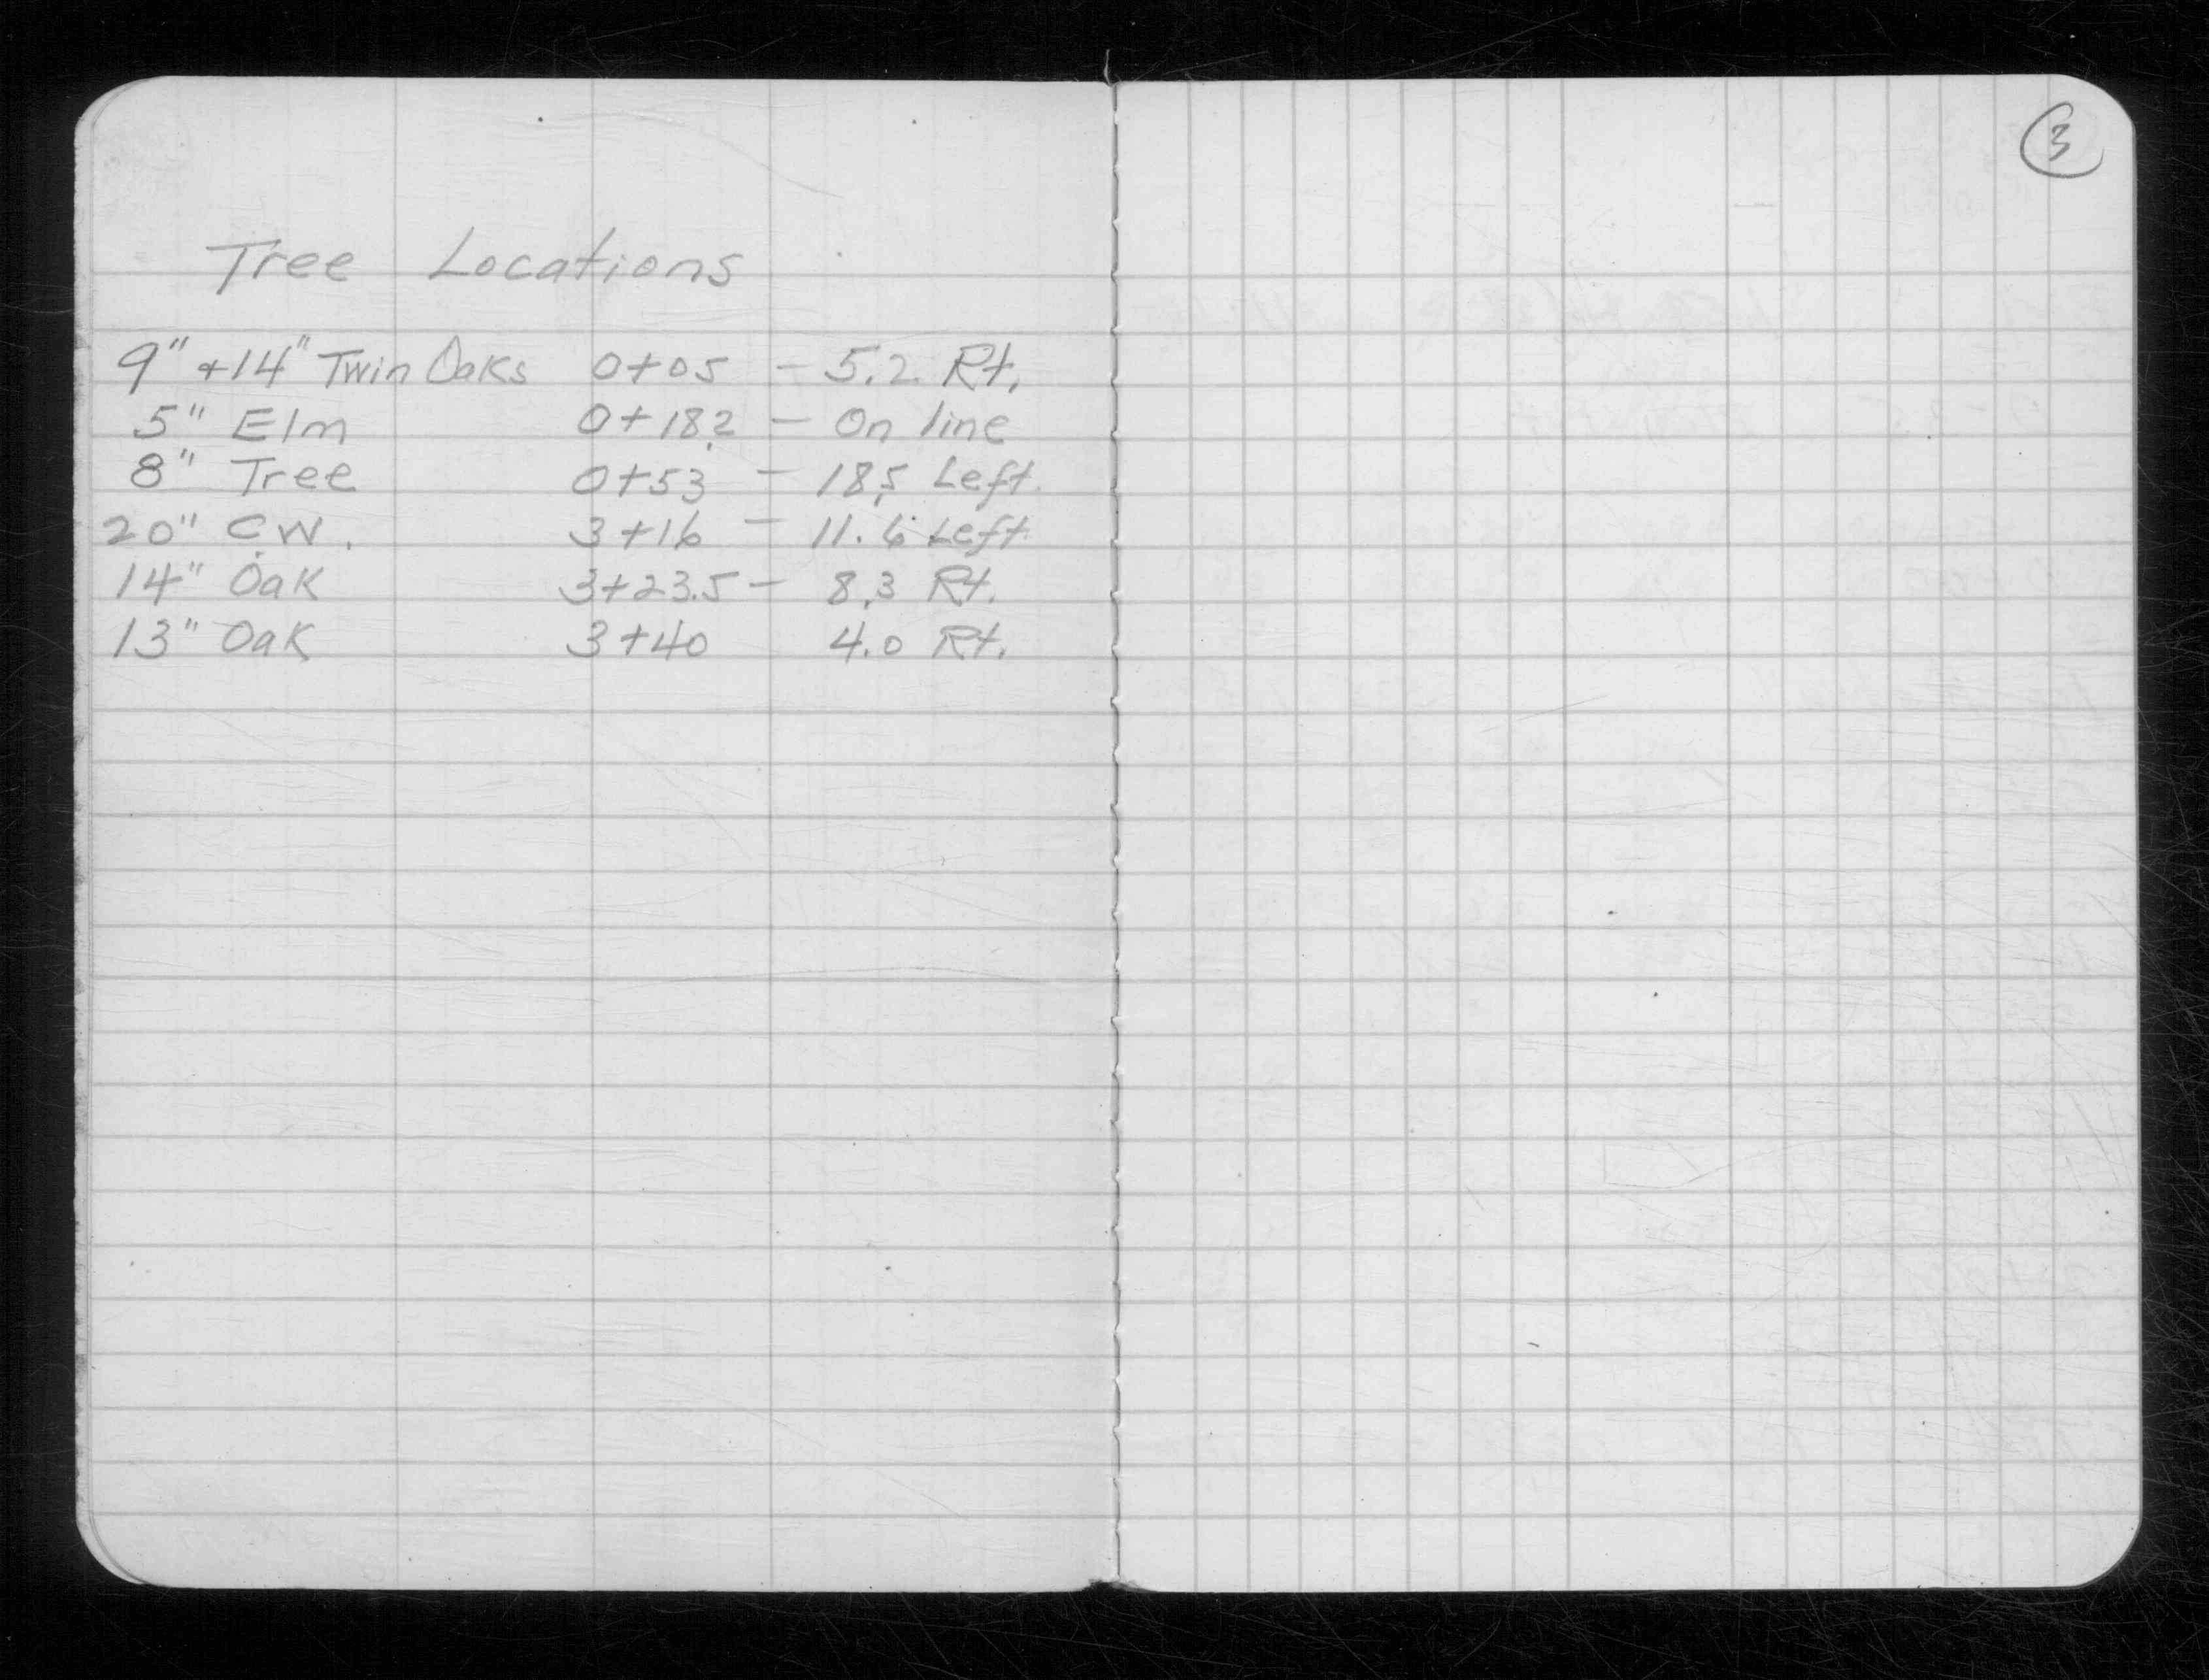 3
Tree Locations
9" + 14" Twin Oaks 0+05 - 5.2 Rt.
5" Elm 0+18.2 - On line
8" Tree 0+53 - 18.5 Left
20" C.W. 3+16 - 11.6 Left
14" Oak 3+23.5 - 8.3 Rt.
13" Oak 3+40 4.0 Rt.